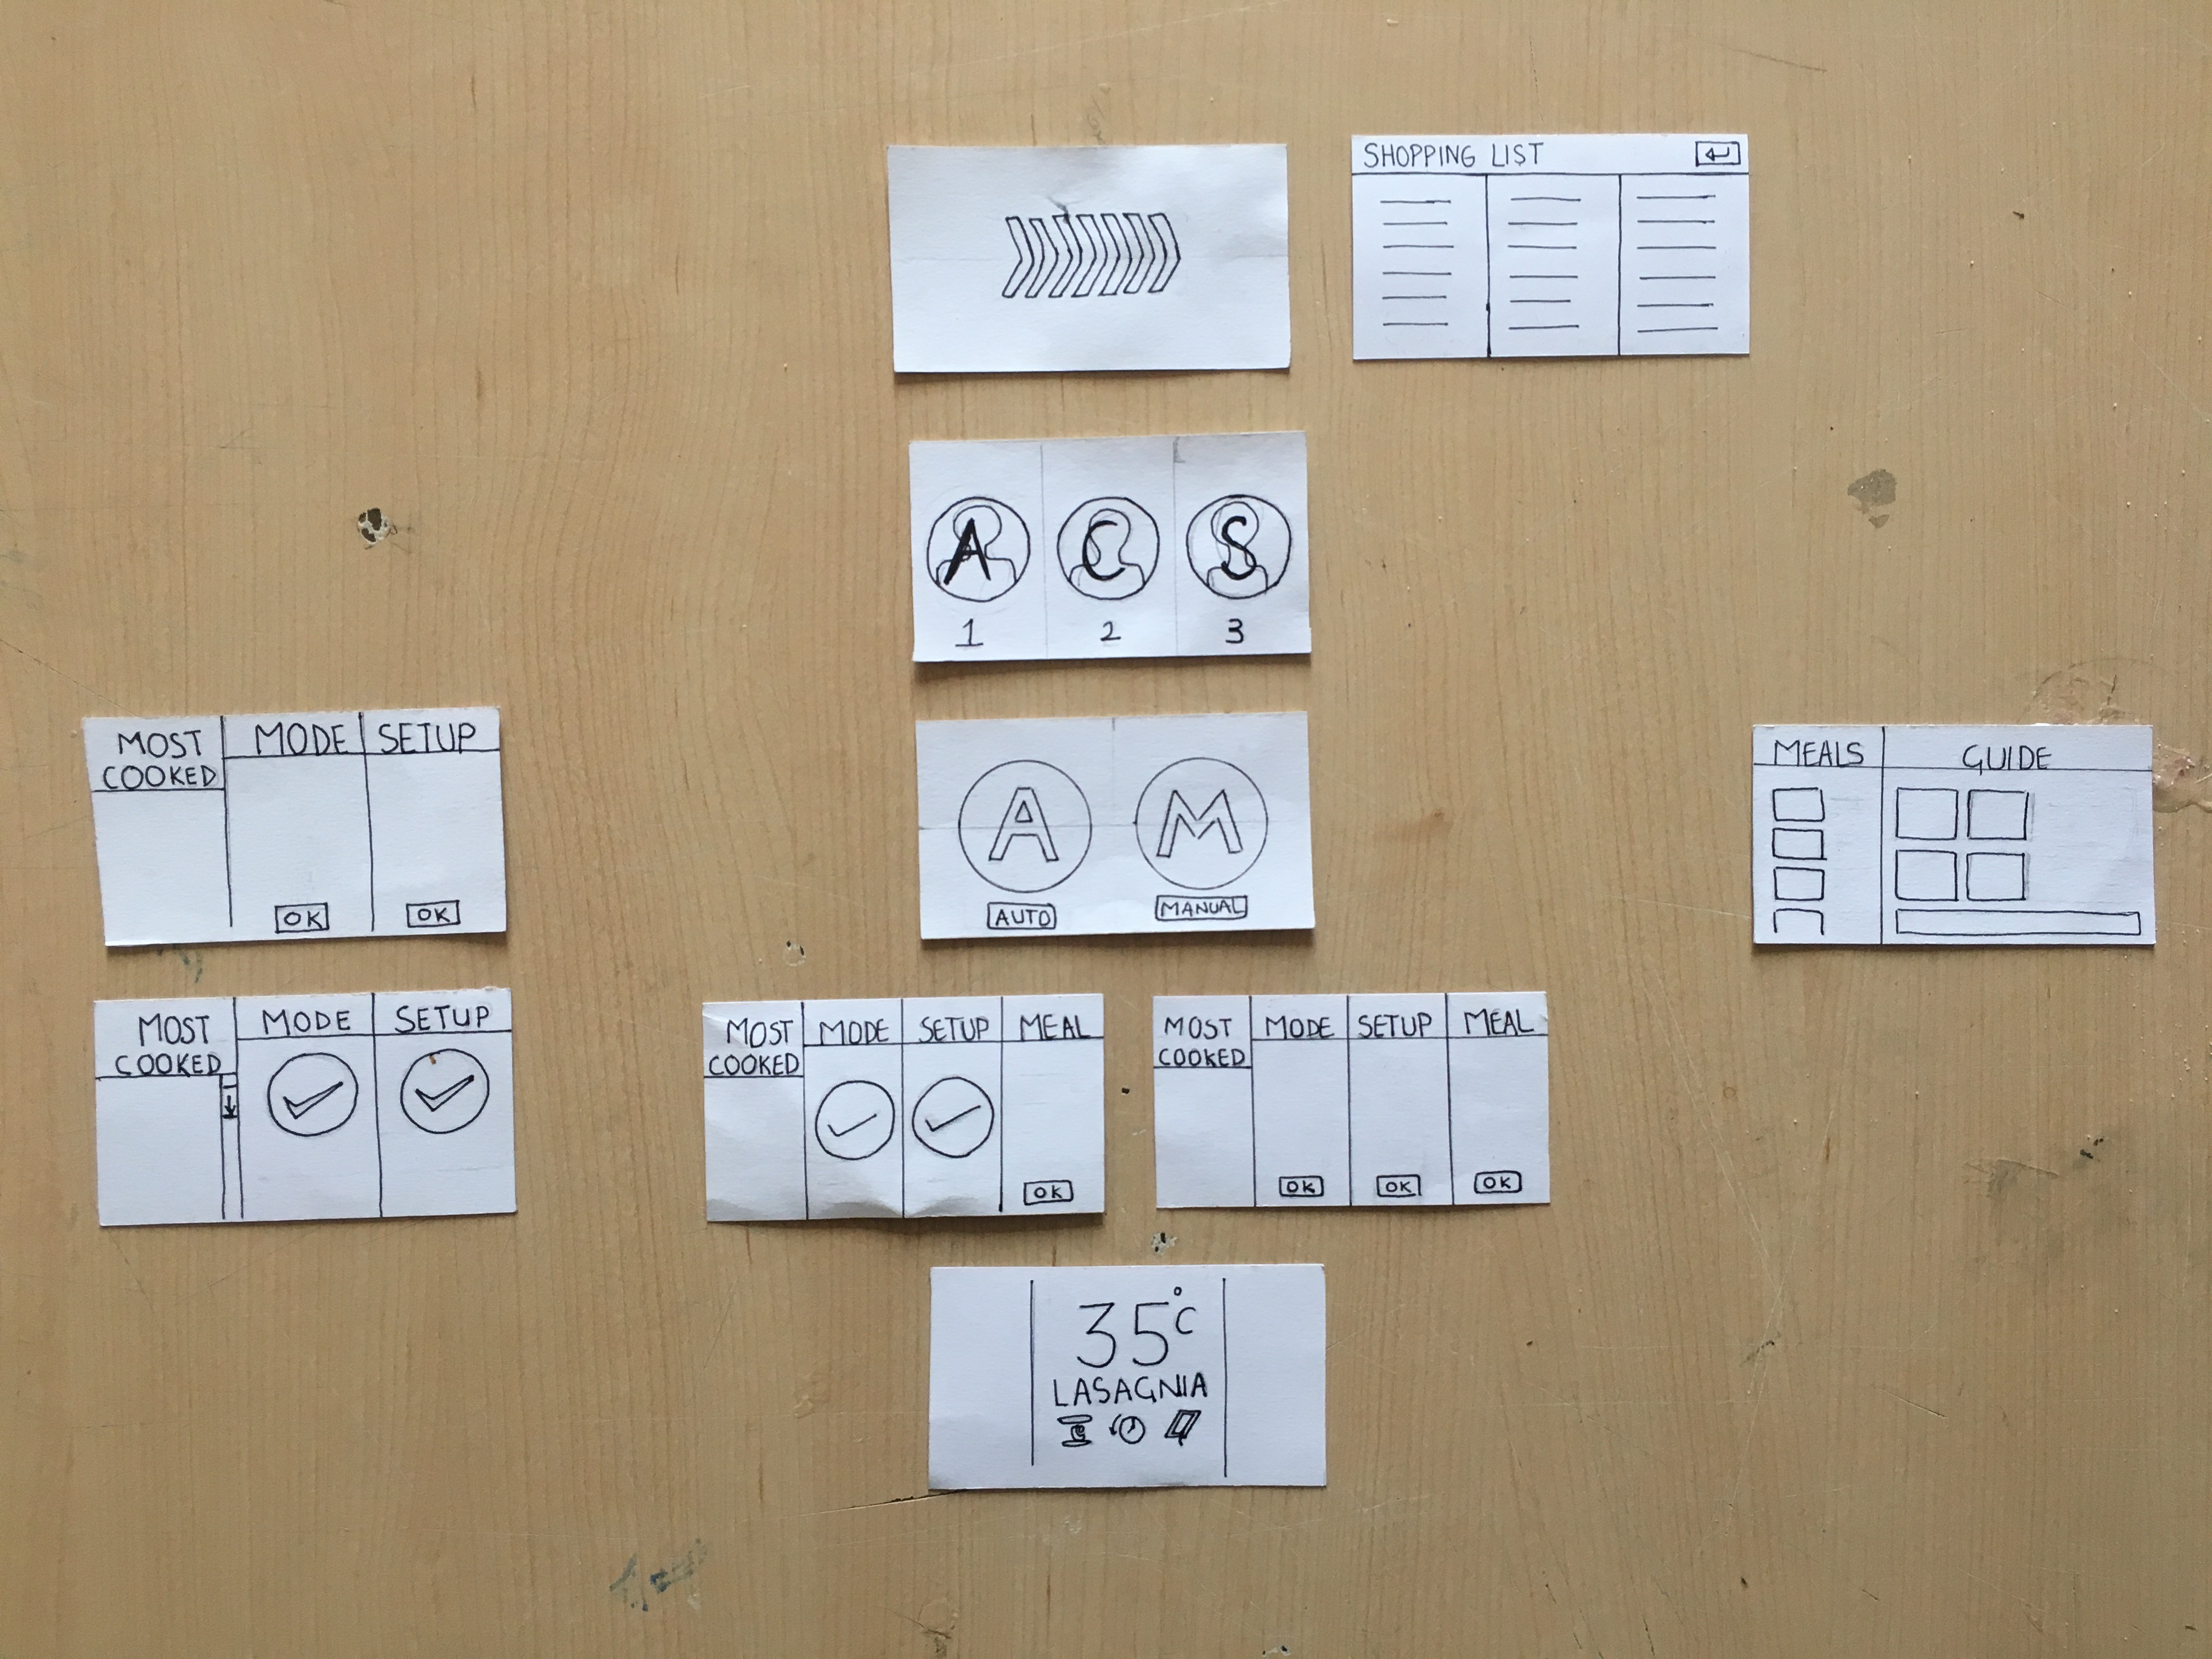 SHOPPING LIST
A C S
1 2 3
MOST COOKED
MODE
SETUP
OK
OK
A M
AUTO
MANUAL
MEALS
GUIDE
MOST COOKED
MODE
SETUP
MOST COOKED
MODE
SETUP
MEAL
OK
MOST COOKED
MODE
SETUP
MEAL
OK
OK
OK
35°C
LASAGNIA